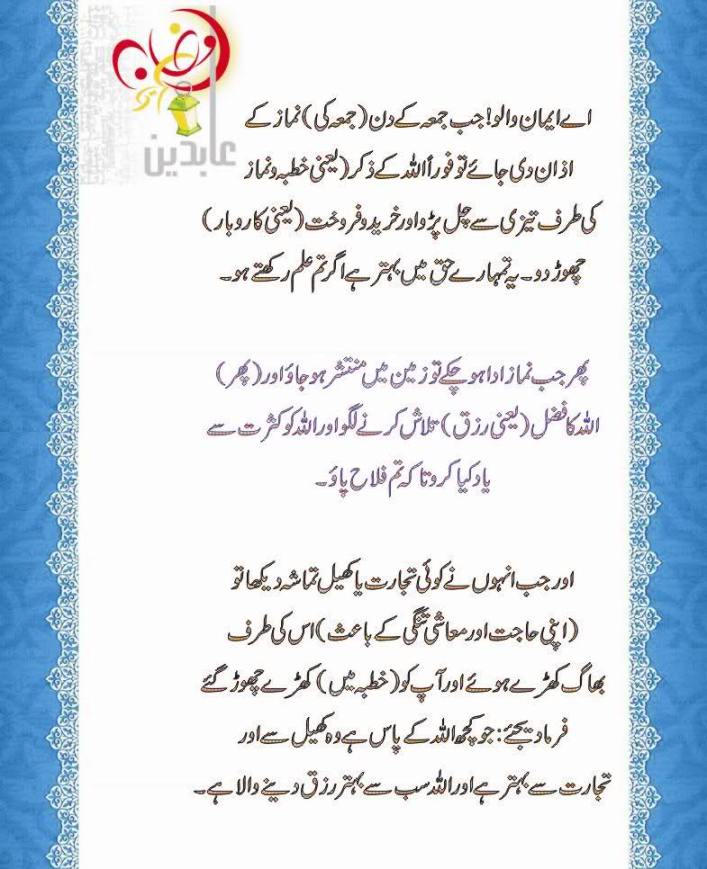 رمضان
عابدين
اے ایمان والو! جب جمعہ کے دن (جمعہ کی) نماز کے
اذان دی جائے تو فوراً اللہ کے ذکر (یعنی خطبہ و نماز
کی طرف تیزی سے چل پڑو اور خرید و فروخت (یعنی کاروبار)
چھوڑ دو۔ یہ تمہارے حق میں بہتر ہے اگر تم علم رکھتے ہو۔
پھر جب نماز ادا ہو چکے تو زمین میں منتشر ہو جاؤ اور (پھر)
اللہ کا فضل (یعنی رزق) تلاش کرنے لگو اور اللہ کو کثرت سے
یاد کیا کرو تاکہ تم فلاح پاؤ۔
اور جب انہوں نے کوئی تجارت یا کھیل تماشہ دیکھا تو
(اپنی حاجت اور معاشی تنگی کے باعث) اس کی طرف
بھاگ کھڑے ہوئے اور آپ کو (خطبہ میں) کھڑے چھوڑ گئے
فرما دیجئے: جو کچھ اللہ کے پاس ہے وہ کھیل سے اور
تجارت سے بہتر ہے اور اللہ سب سے بہتر رزق دینے والا ہے۔